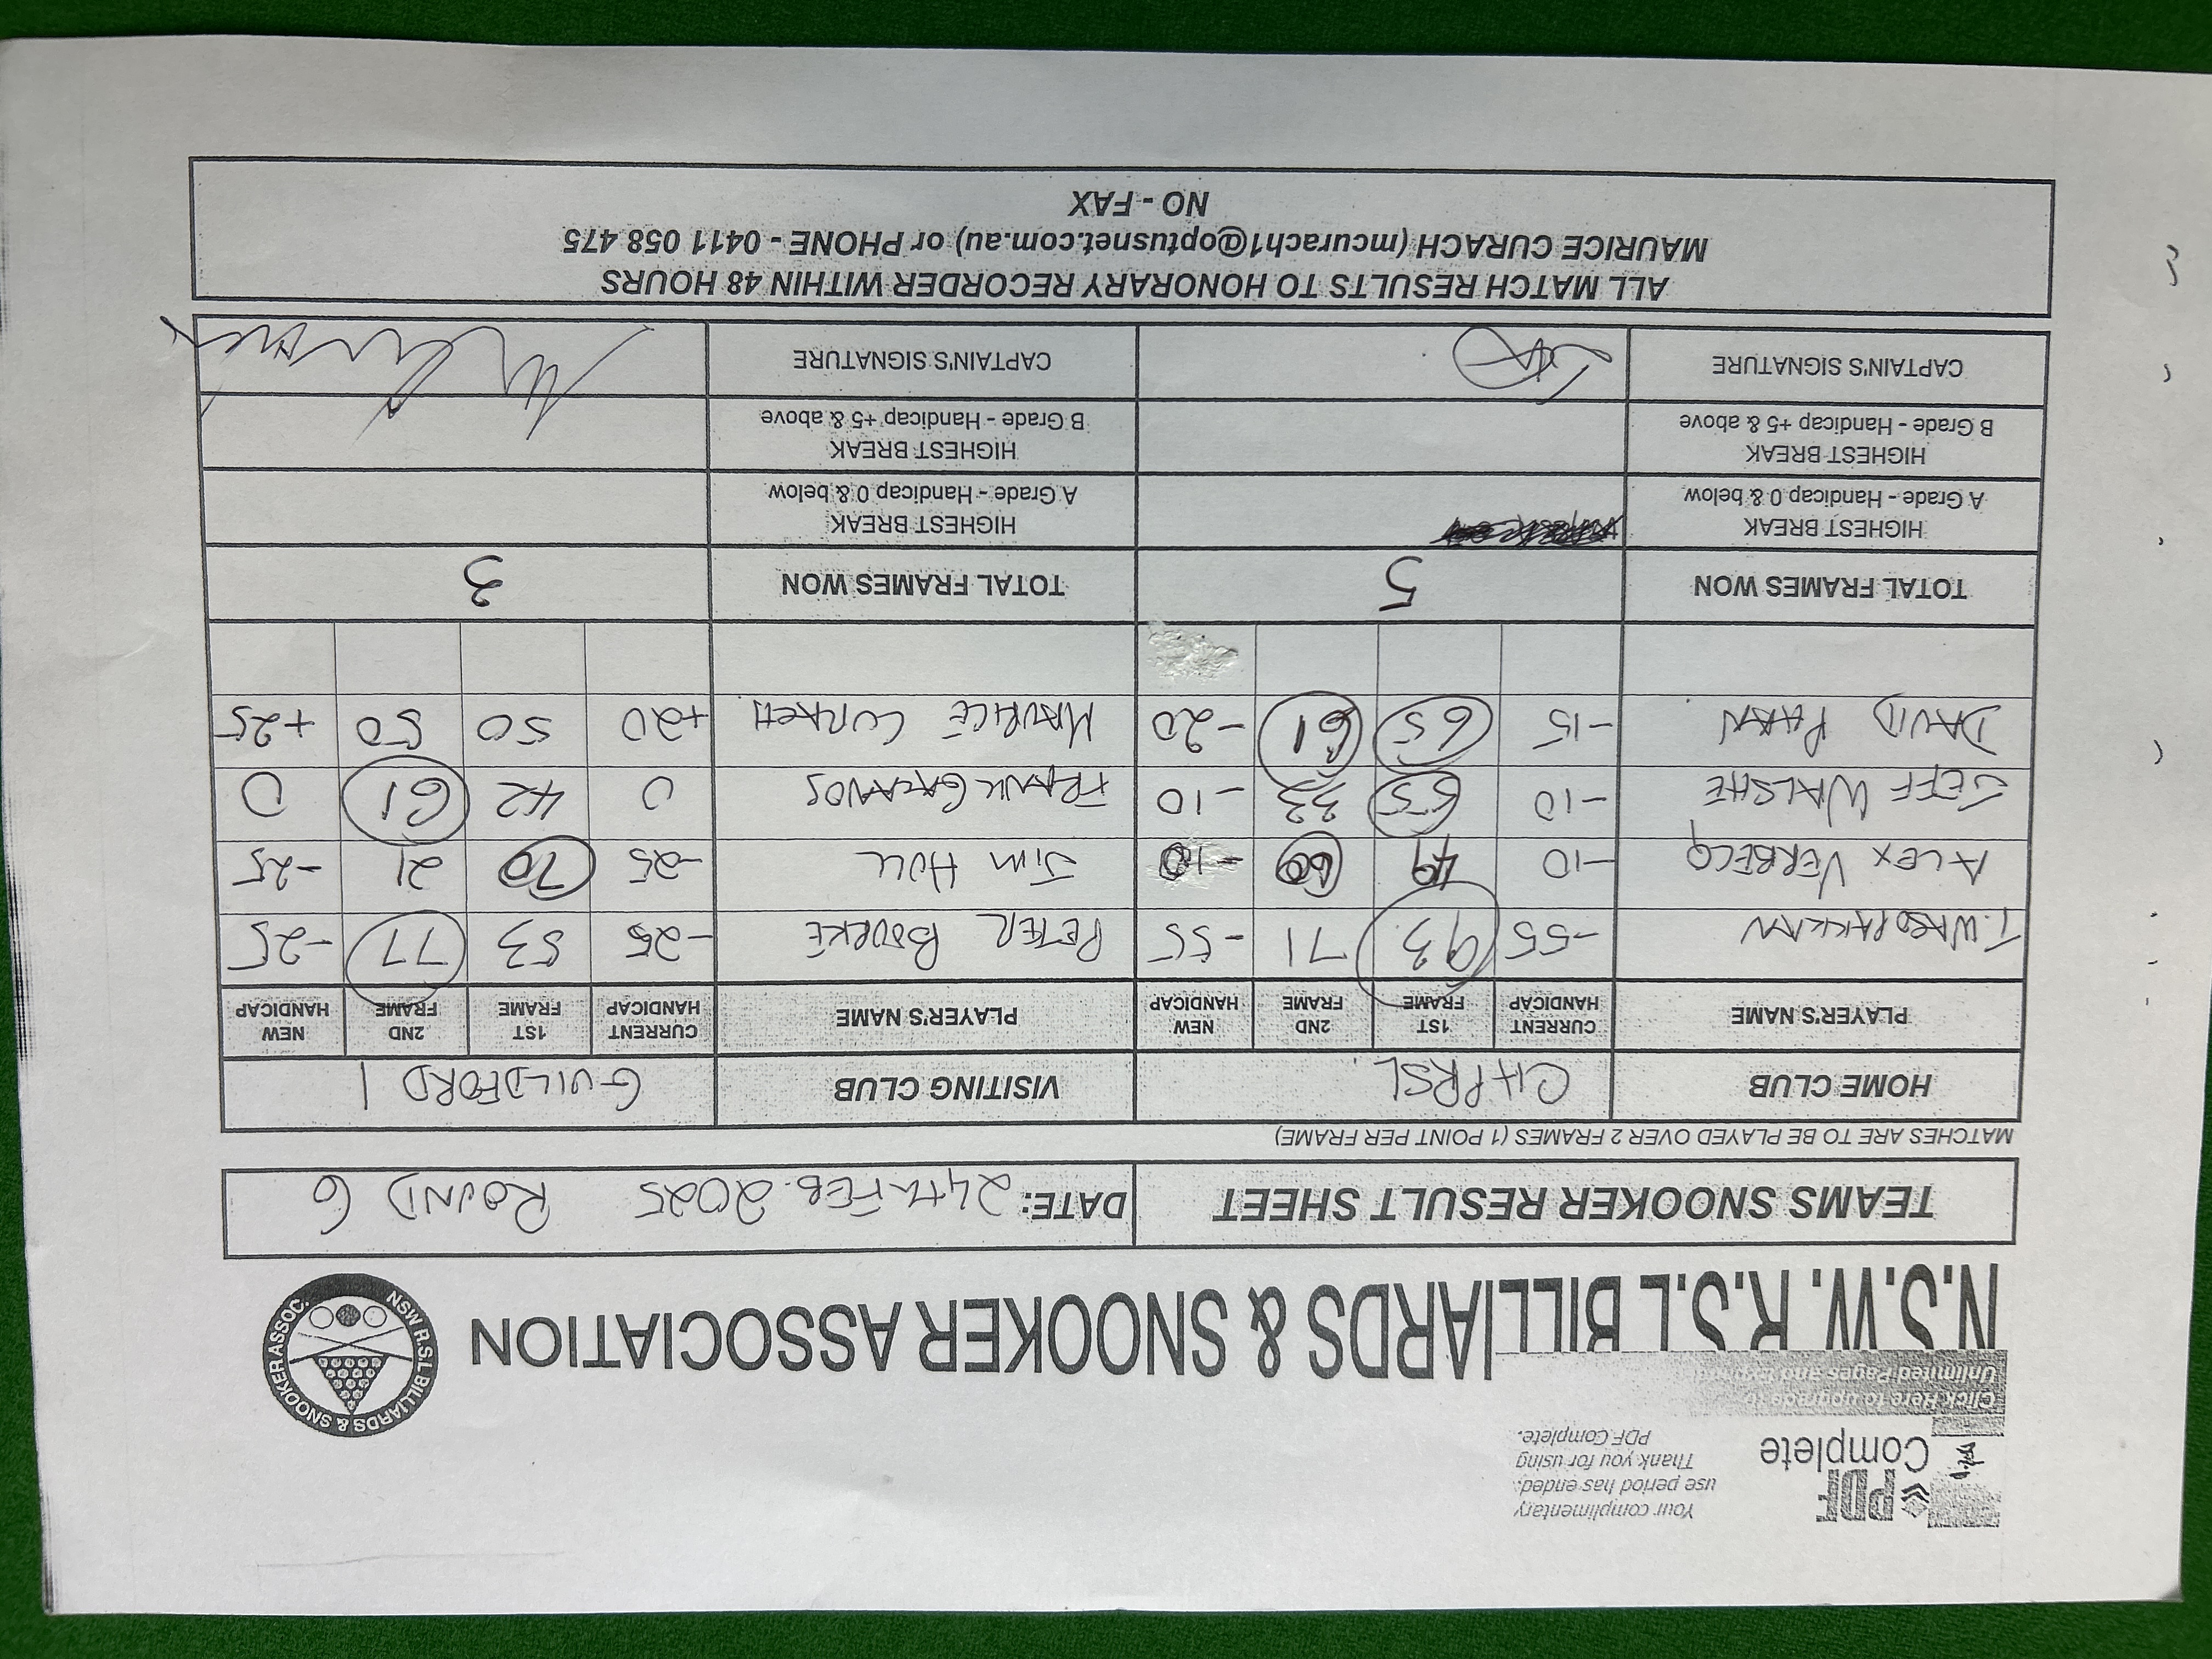 PDF
Complete
Your complimentary
use period has ended.
Thank you for using
PDF Complete.
Click Here to upgrade to
Unlimited Pages and
N.S.W. R.S.L BILLIARDS & SNOOKER ASSOCIATION
NSW R.S.L BILLIARDS & SNOOKER ASSOC.
TEAMS SNOOKER RESULT SHEET DATE: 24TH FEB. 2025 ROUND 6
MATCHES ARE TO BE PLAYED OVER 2 FRAMES (1 POINT PER FRAME)
HOME CLUB CHPRSL VISITING CLUB GUILDFORD 1
PLAYER'S NAME CURRENT HANDICAP 1ST FRAME 2ND FRAME NEW HANDICAP PLAYER'S NAME CURRENT HANDICAP 1ST FRAME 2ND FRAME NEW HANDICAP
-55 93 71 -55 PETER BOURKE -25 53 77 -25
ALEX VERBECQ -10 49 60 -10 JIM HULL -25 70 21 -25
GEFF WALSHE -10 33 -10 FRANK 0 42 61 0
DAVID PHAN -15 65 61 -20 MAURICE CURACH +20 50 50 +25
TOTAL FRAMES WON 5 TOTAL FRAMES WON 3
HIGHEST BREAK HIGHEST BREAK
A Grade - Handicap 0 & below A Grade - Handicap 0 & below
HIGHEST BREAK HIGHEST BREAK
B Grade - Handicap +5 & above B Grade - Handicap +5 & above
CAPTAIN'S SIGNATURE CAPTAIN'S SIGNATURE
ALL MATCH RESULTS TO HONORARY RECORDER WITHIN 48 HOURS
MAURICE CURACH (mcurach1@optusnet.com.au) or PHONE - 0411 058 475
NO - FAX